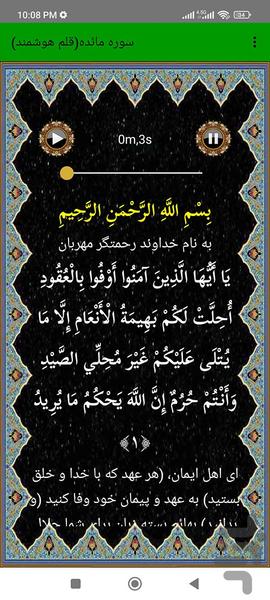 10:08 PM
سوره مائده(قلم هوشمند)
0m,3s
بِسْمِ اللَّهِ الرَّحْمَنِ الرَّحِيمِ
به نام خداوند رحمتگر مهربان
يَا أَيُّهَا الَّذِينَ آمَنُوا أَوْفُوا بِالْعُقُودِ
أُحِلَّتْ لَكُمْ بَهِيمَةُ الْأَنْعَامِ إِلَّا مَا
يُتْلَى عَلَيْكُمْ غَيْرَ مُحِلِّي الصَّيْدِ
وَأَنْتُمْ حُرُمٌ إِنَّ اللَّهَ يَحْكُمُ مَا يُرِيدُ
﴿۱﴾
ای اهل ایمان، (هر عهد که با خدا و خلق
بستید) به عهد و پیمان خود وفا کنید (و